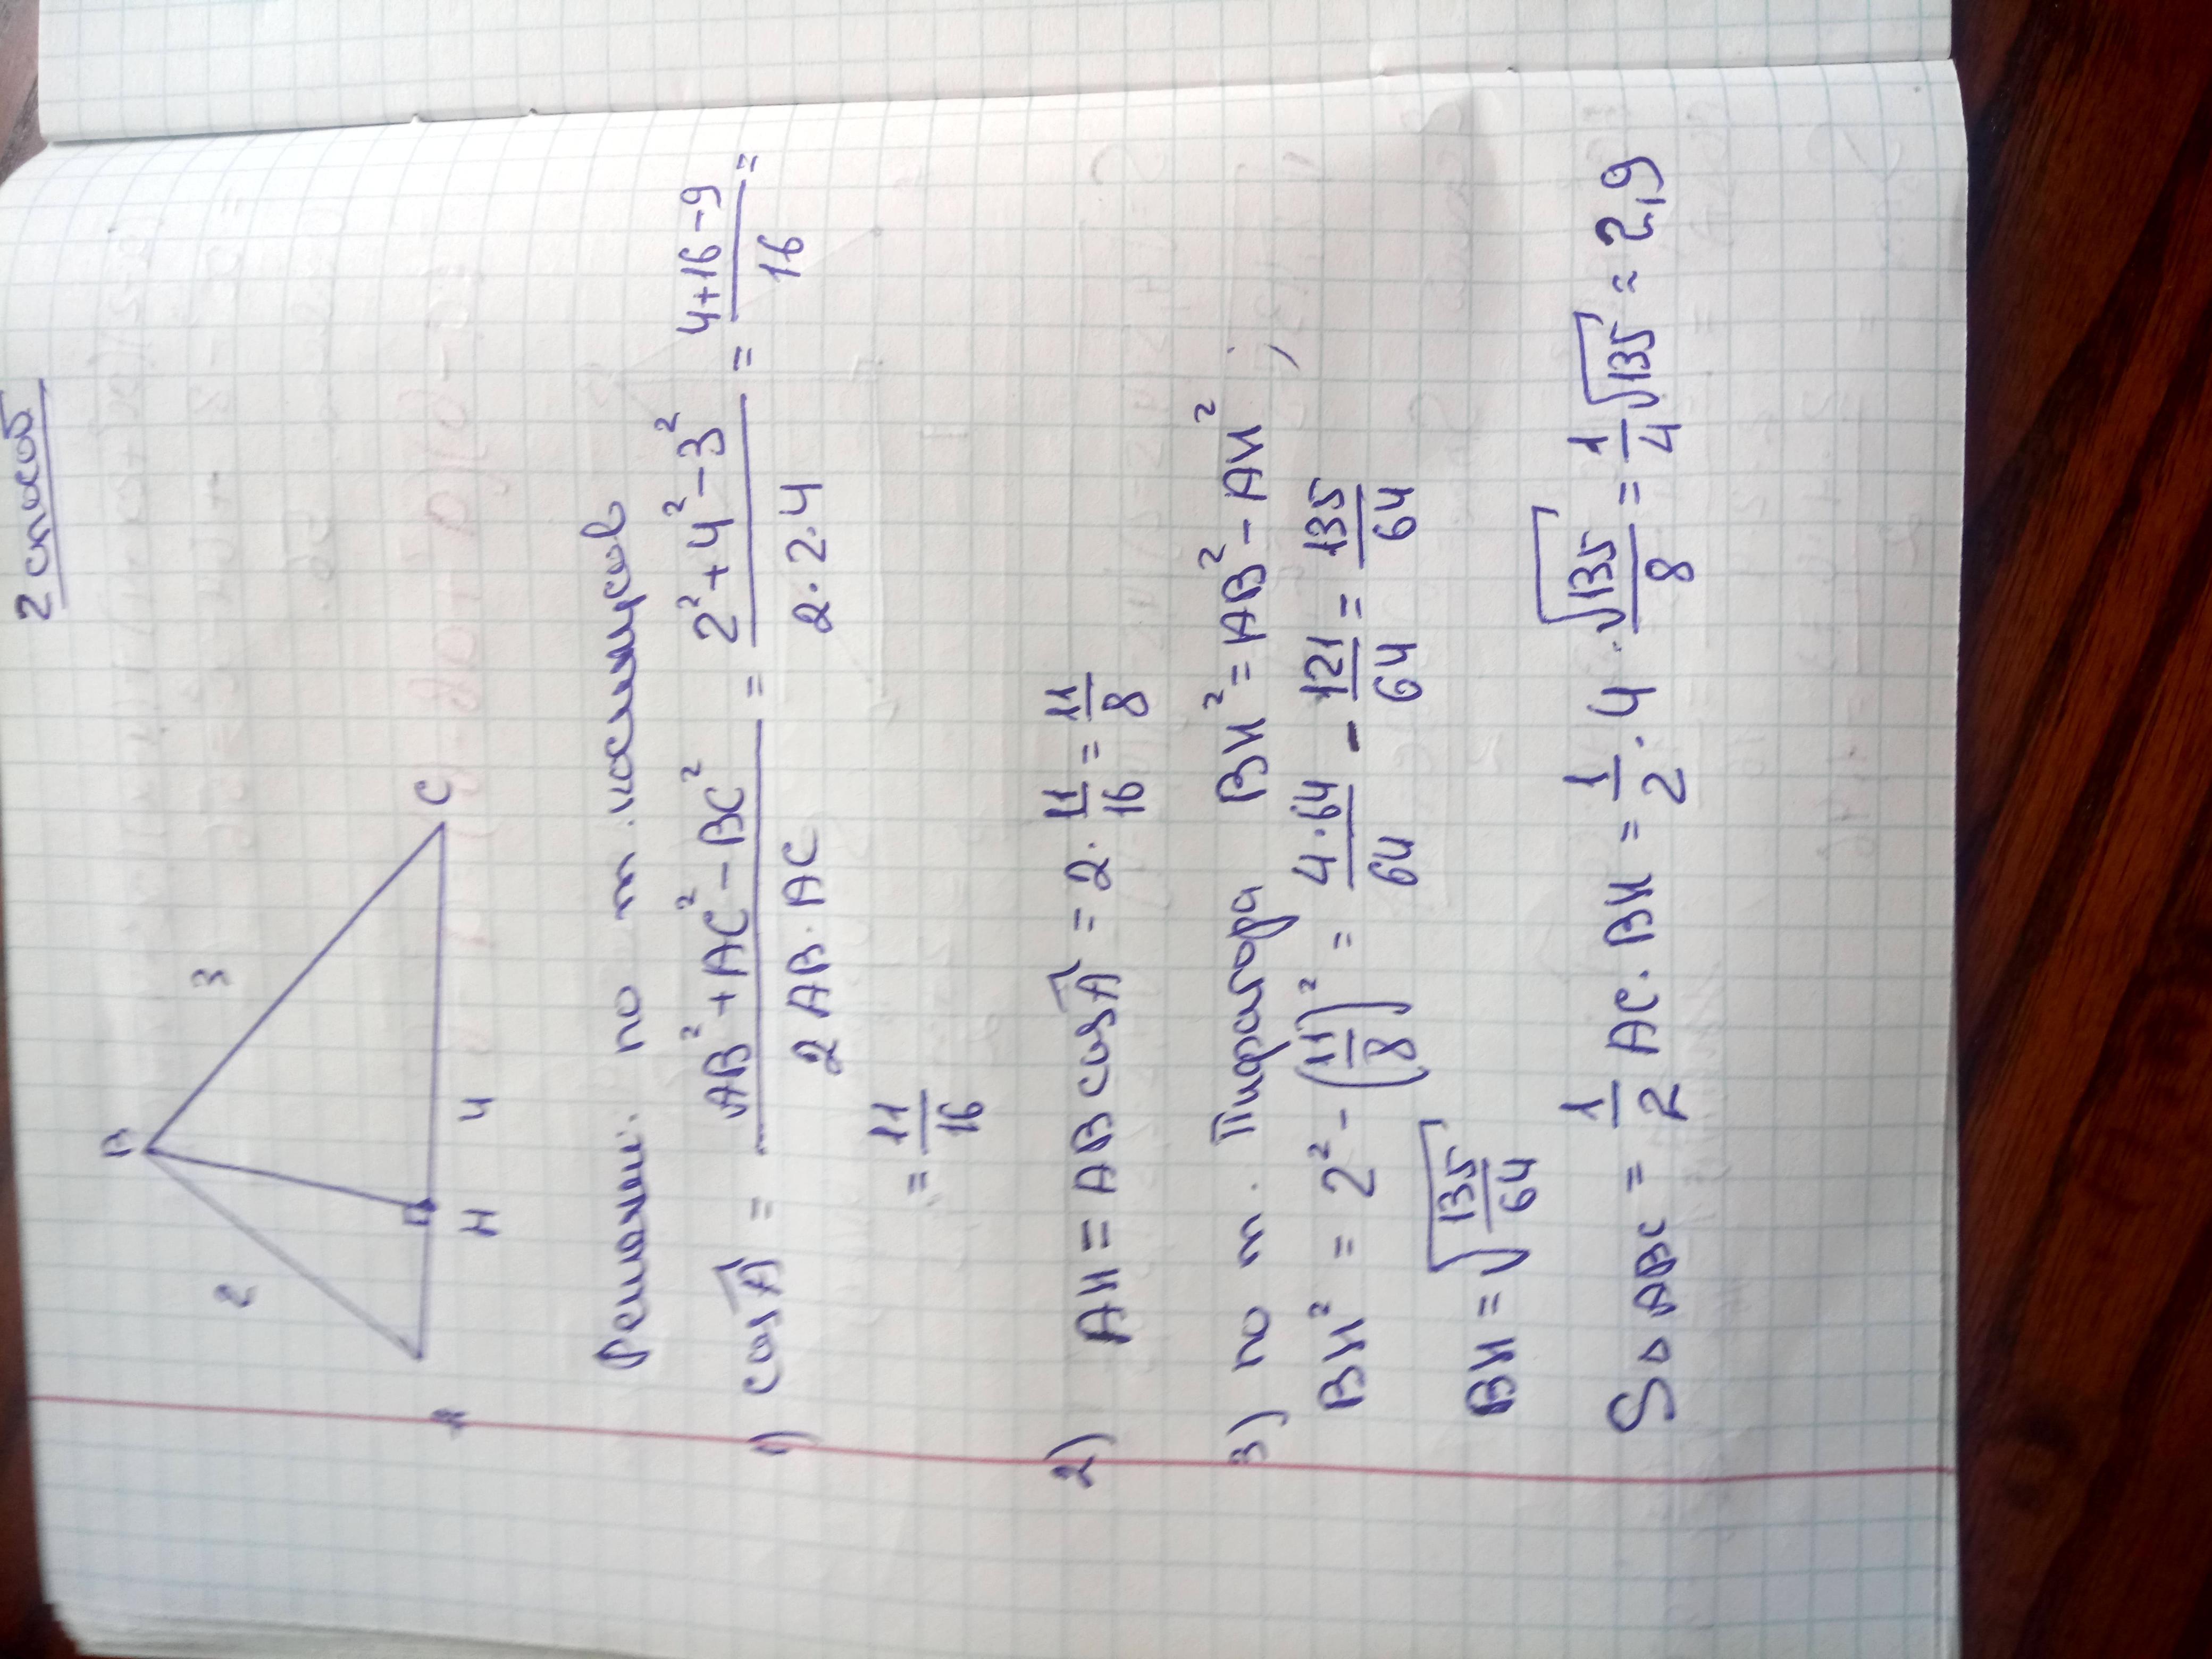 2 способ
B
2
3
A
H
4
C
Решение: по т. косинусов
1) cos A = (AB² + AC² - BC²)/(2 AB · AC) = (2² + 4² - 3²)/(2 · 2 · 4) = (4+16-9)/16 =
= 11/16
2) AH = AB cos A = 2 · 11/16 = 11/8
3) по т. Пифагора BH² = AB² - AH² ;
BH² = 2² - (11/8)² = (4·64)/64 - 121/64 = 135/64
BH = √(135/64)
S△ABC = 1/2 AC · BH = 1/2 · 4 · √135/8 = 1/4 √135 ≈ 2,9